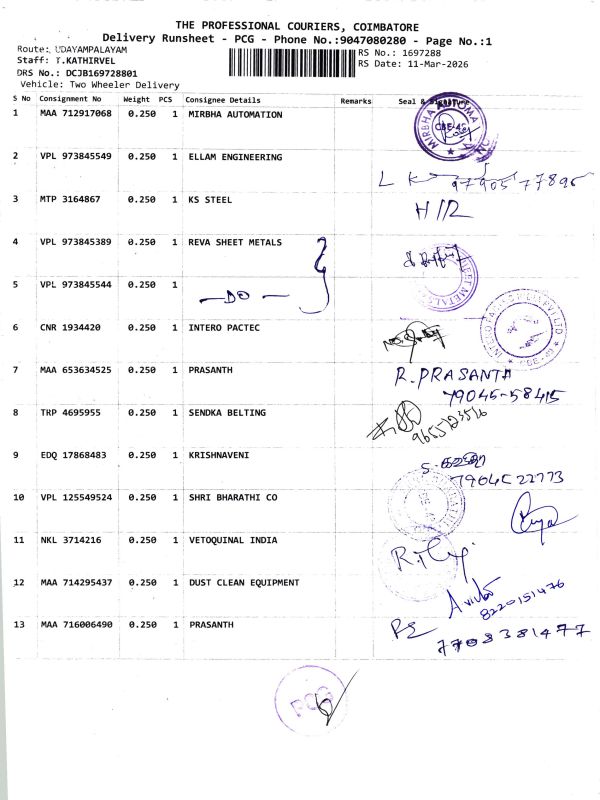 THE PROFESSIONAL COURIERS, COIMBATORE
Delivery Runsheet - PCG - Phone No.:9047080280 - Page No.:1
Route: UDAYAMPALAYAM
RS No.: 1697288
Staff: T.KATHIRVEL
RS Date: 11-Mar-2026
DRS No.: DCJB169728801
Vehicle: Two Wheeler Delivery
S No Consignment No Weight PCS Consignee Details Remarks Seal & Signature
1 MAA 712917068 0.250 1 MIRBHA AUTOMATION
2 VPL 973845549 0.250 1 ELLAM ENGINEERING
3 MTP 3164867 0.250 1 KS STEEL
4 VPL 973845389 0.250 1 REVA SHEET METALS
5 VPL 973845544 0.250 1 — DO —
6 CNR 1934420 0.250 1 INTERO PACTEC
7 MAA 653634525 0.250 1 PRASANTH R. PRASANTH
79045-58415
8 TRP 4695955 0.250 1 SENDKA BELTING
9 EDQ 17868483 0.250 1 KRISHNAVENI
10 VPL 125549524 0.250 1 SHRI BHARATHI CO
11 NKL 3714216 0.250 1 VETOQUINAL INDIA
12 MAA 714295437 0.250 1 DUST CLEAN EQUIPMENT
8220151476
13 MAA 716006490 0.250 1 PRASANTH
7708381477
PCG